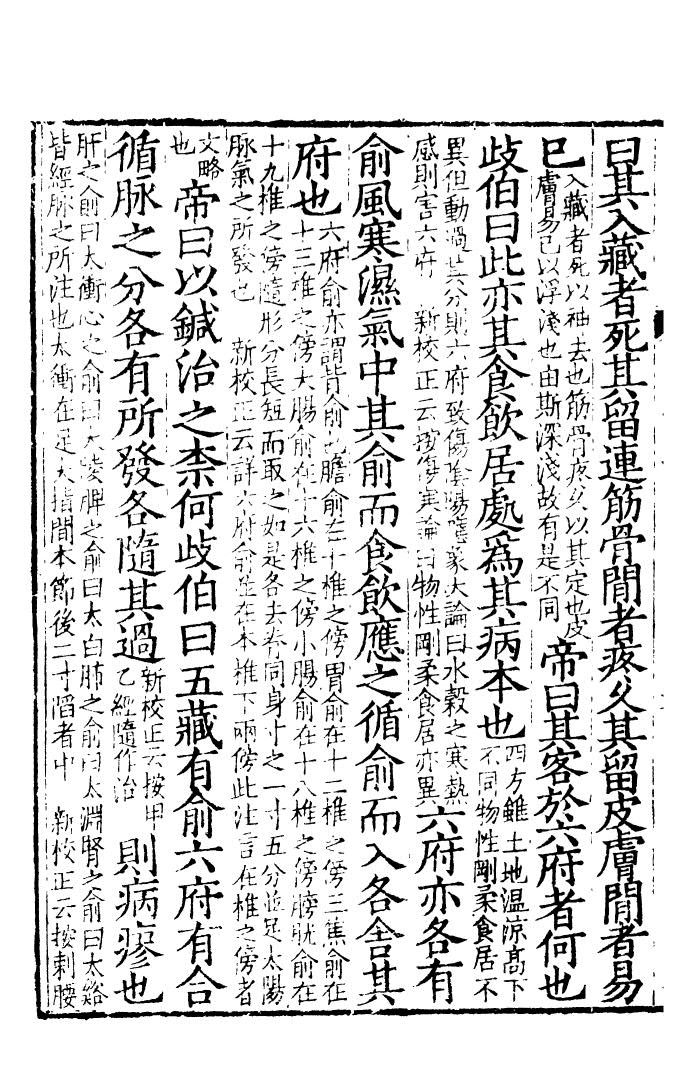 曰其入藏者死其留連筋骨閒者疼久其留皮膚閒者易
已
入藏者死以神去也筋骨疼久以其定也皮
膚易已以浮淺也由斯深淺故有是不同
帝曰其客於六府者何也
歧伯曰此亦其食飲居處爲其病本也
四方雖土地温凉高下
不同物性剛柔食居不
異但動過其分則六府致傷陰陽應象大論曰水穀之寒熱
感則害六府　新校正云按傷寒論曰物性剛柔食居亦異
六府亦各有
俞風寒濕氣中其俞而食飲應之循俞而入各舍其
府也
六府俞亦謂背俞也膽俞在十椎之傍胃俞在十二椎之傍三焦俞在
十三椎之傍大腸俞在十六椎之傍小腸俞在十八椎之傍膀胱俞在
十九椎之傍隨形分長短而取之如是各去脊同身寸之一寸五分並足太陽
脉氣之所發也　新校正云詳六府俞並在本椎下兩傍此注言在椎之傍者
文略
也
帝曰以鍼治之柰何歧伯曰五藏有俞六府有合
循脉之分各有所發各隨其過
新校正云按甲
乙經隨作治
則病瘳也
肝之俞曰太衝心之俞曰太陵脾之俞曰太白肺之俞曰太淵腎之俞曰太谿
皆經脉之所注也太衝在足大指間本節後二寸陷者中　新校正云按刺腰